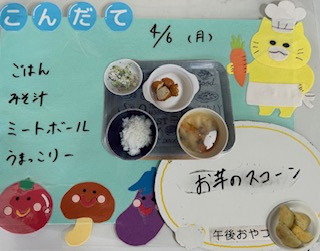 こんだて
4/6 (月)
ごはん
みそ汁
ミートボール
うまっこりー
お芋のスコーン
午後おやつ